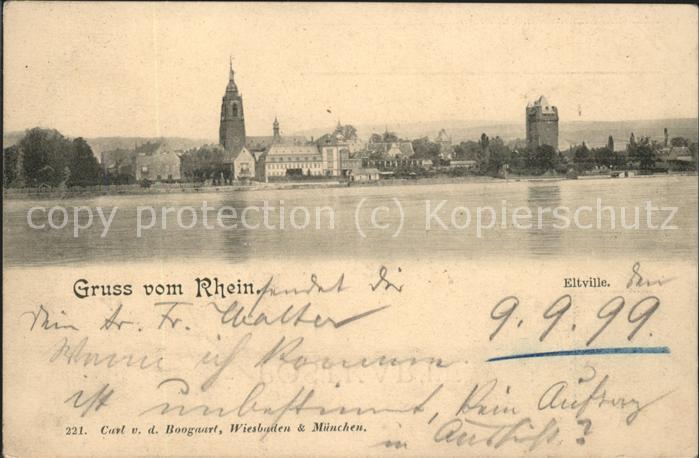 copy protection (c) Kopierschutz
Gruss vom Rhein. sendet dir
Eltville. den
dein tr. Fr. Walter
9.9.99.
Wann ich komme
ist unbestimmt, kein Auftrag
221. Carl v. d. Boogaart, Wiesbaden & München.
in Aussicht?